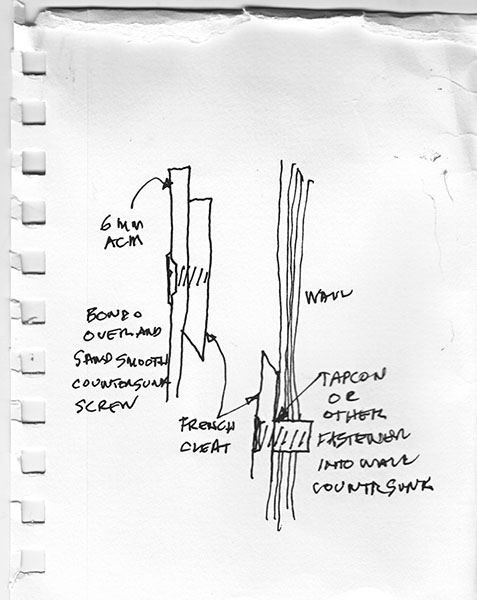 6MM
ACM
BONDO
OVER AND
SAND SMOOTH
COUNTERSUNK
SCREW
FRENCH
CLEAT
WALL
TAPCON
OR
OTHER
FASTENER
INTO WALL
COUNTRSUNK